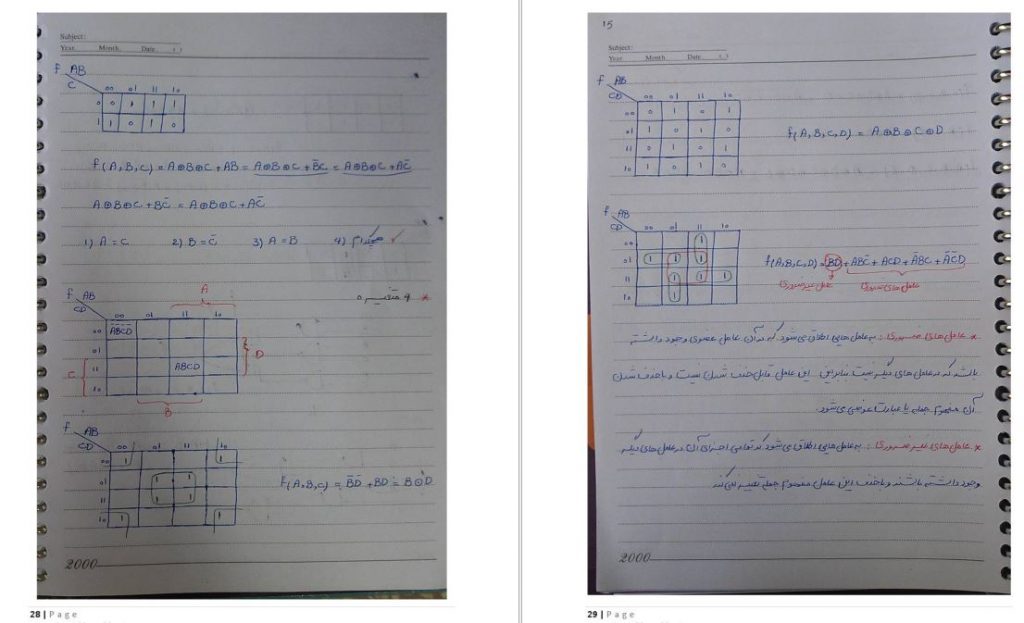 Subject:
Year. Month. Date. ( )
f AB
C 00 01 11 10
0 0 1 1 1
1 1 0 1 0
f(A,B,C) = A⊕B⊕C + AB = A⊕B⊕C + B̄C = A⊕B⊕C + AC̄
A⊕B⊕C + BC̄ = A⊕B⊕C + AC̄
1) A = C 2) B = C̄ 3) A = B 4) هیچکدام ✓
* ۴ متغیره
f AB
CD 00 01 11 10
A
00 ĀB̄C̄D̄
01
C 11 ABCD
10
D
B
f AB
CD 00 01 11 10
00 1 1
01 1 1
11 1 1
10 1 1
f(A,B,C) = B̄D̄ + BD = B⊙D
2000
28 | Page
15
Subject:
Year. Month. Date.
f AB
CD 00 01 11 10
00 0 1 0 1
01 1 0 1 0
11 0 1 0 1
10 1 0 1 0
f(A,B,C,D) = A⊕B⊕C⊕D
f AB
CD 00 01 11 10
00 1
01 1 1 1
11 1 1 1
10 1
f(A,B,C,D) = BD + ABC̄ + ACD + ĀBC + ĀC̄D
عامل غیرضروری عامل‌های ضروری
* عامل‌های ضروری : به عامل‌هایی اطلاق می‌شود که در آن عامل عضوی وجود داشته
باشد که در عامل های دیگر نیست بنابراین این عامل قابل حذف شدن نیست و با حذف شدن
آن مفهوم جمله یا عبارت عوض می‌شود.
* عامل‌های غیرضروری : به عامل‌هایی اطلاق می‌شود که تمامی اجزای آن در عامل‌های دیگر
وجود داشته باشند و با حذف این عامل مفهوم جمله تغییر نمی‌کند
2000
29 | Page